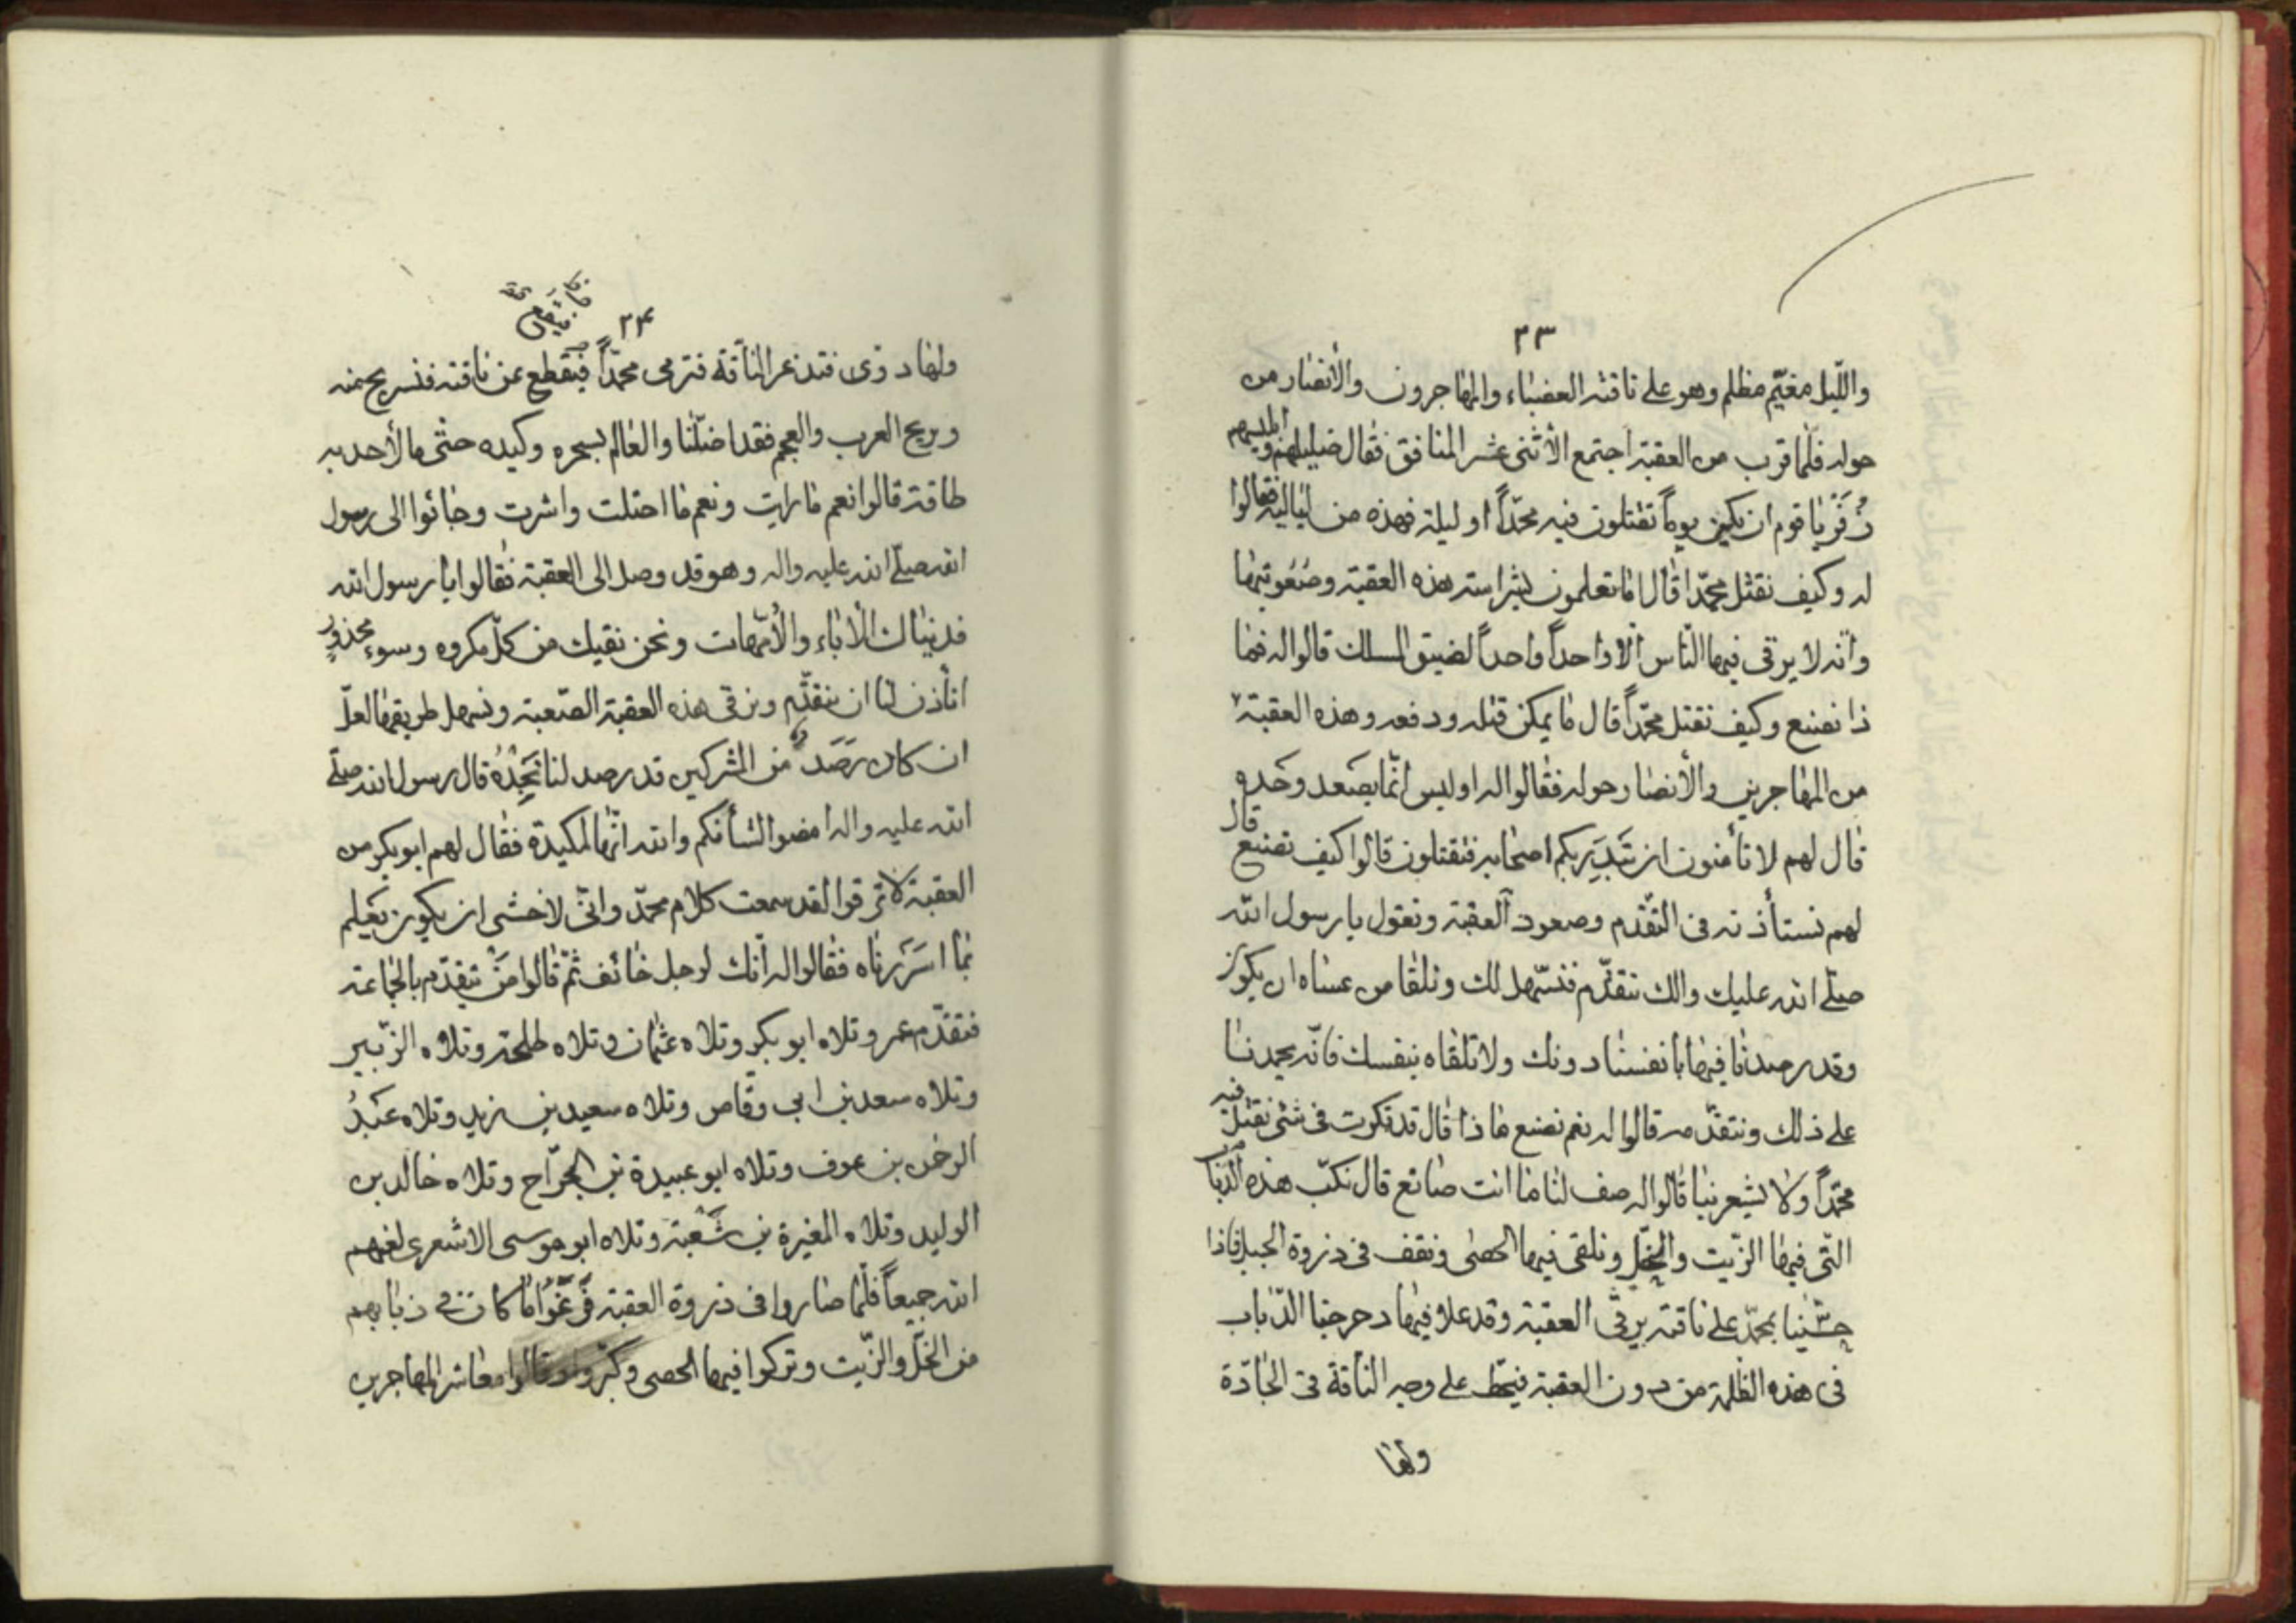 ٢٣
واللّيل مغيّم مظلم وهو على ناقته العضباء والمهاجرون والأنصار من
حوله فلمّا قرب من العقبة اجتمع الأثنى عشر المنافق فقال ضليلهم وابليسهم
زُفَرْ يا قوم ان يكن يوماً تقتلون فيه محمّداً او ليلة فهذه من لياليه فقالوا
له وكيف نقتل محمّدا قال اما تعلمون بشراسة هذه العقبة وصُعُوبتها
وانّه لا يرقى فيها النّاس الّا واحداً واحداً لضيق المسلك قالوا له فما
ذا نصنع وكيف نقتل محمّداً قال ما يمكن قتله ودفعه وهذه العقبة
من المهاجرين والأنصار حوله فقالوا له اوليس انّما يصعد وحده
قال لهم لا تأمنون ان يَتَبدّر بكم اصحابه فتقتلون قالوا كيف نصنع قال
لهم نستأذنه فى التّقدّم وصعود العقبة ونقول يا رسول الله
صلّى الله عليك والك نتقدّم فنسّهل لك ونلقا من عساه ان يكون
وقد رصدنا فيها بانفسنا دونك ولا تلقاه بنفسك فانّه يحمدنا
على ذلك ونتقدّمه قالوا له نعم نصنع ما ذا قال قد فكرت فى شئ نقتل فيه
محمّداً ولا يشعر بنا قالوا له صف لنا ما انت صانع قال نكبّ هذه الدّباب
التّى فيها الزّيت والخلّ ونلقى فيها الحصى ونقف فى ذروة الجبل فاذا
حسّنا بمحمّد على ناقته يرقى العقبة وقد علا فيها دحرجنا الدّباب
فى هذه الظلمة من دون العقبة فينحط على وجه الناقة فى الجادّة
ولها
٢٤
ولها دوّى فتذعر النّاقة فترمى محمّداً فيقطع عن ناقته فنسريح منه
ويريح العرب والعجم فقد اضلّنا والعالم بسحره وكيده حتّى ما لأحد به
طاقة قالوا نعم ما رايت ونعم ما احتلت واشرت وجائوا الى رسول
الله صلّى الله عليه واله وهو قد وصل الى العقبة فقالوا يا رسول الله
فديناك الاباء والأمّهات ونحن نقيك من كلّ مكروه وسوء محذور
اتأذن لنا ان نتقدّم ونرقى هذه العقبة الصّعبة ونسهل طريقها لعلّ
ان كان رَصَد من المشركين قد رصد لنا نَجِدْهُ قال رسول الله صلّى
الله عليه واله امضوا لشأنكم والله انّها لمكيدة فقال لهم ابو بكر من
العقبة لا ترقوا لقد سمعت كلام محمّد وانّى لاخشى ان يكون يعلم
بما اسررناه فقالوا له انّك لرجل خائف ثمّ قالوا مَنْ يتقدّم بالجماعة
فتقدّم عمر وتلاه ابو بكر وتلاه عثمان وتلاه طلحة وتلاه الزّبير
وتلاه سعد بن ابى وقّاص وتلاه سعيد بن زيد وتلاه عَبْدُ
الرحمن بن عوف وتلاه ابو عبيدة بن الجرّاح وتلاه خالد بن
الوليد وتلاه المغيرة بن شُعْبة وتلاه ابو موسى الاشعرى لعنهم
الله جميعاً فلمّا صاروا فى ذروة العقبة فَرَّغُوا ما كان فى ذبابهم
من الخلّ والزّيت وتركوا فيها الحصى وكبّروا وقالوا معاشر المهاجرين